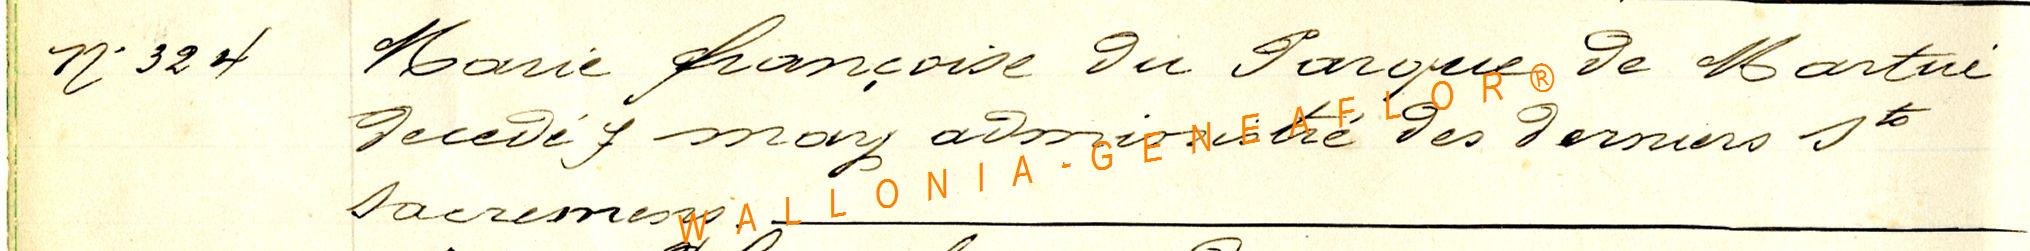 N° 324 Marie françoise du Parque de Martué
decedé 7 may admonistré des derniers Sts
sacremens.
WALLONIA-GENEAFLOR®